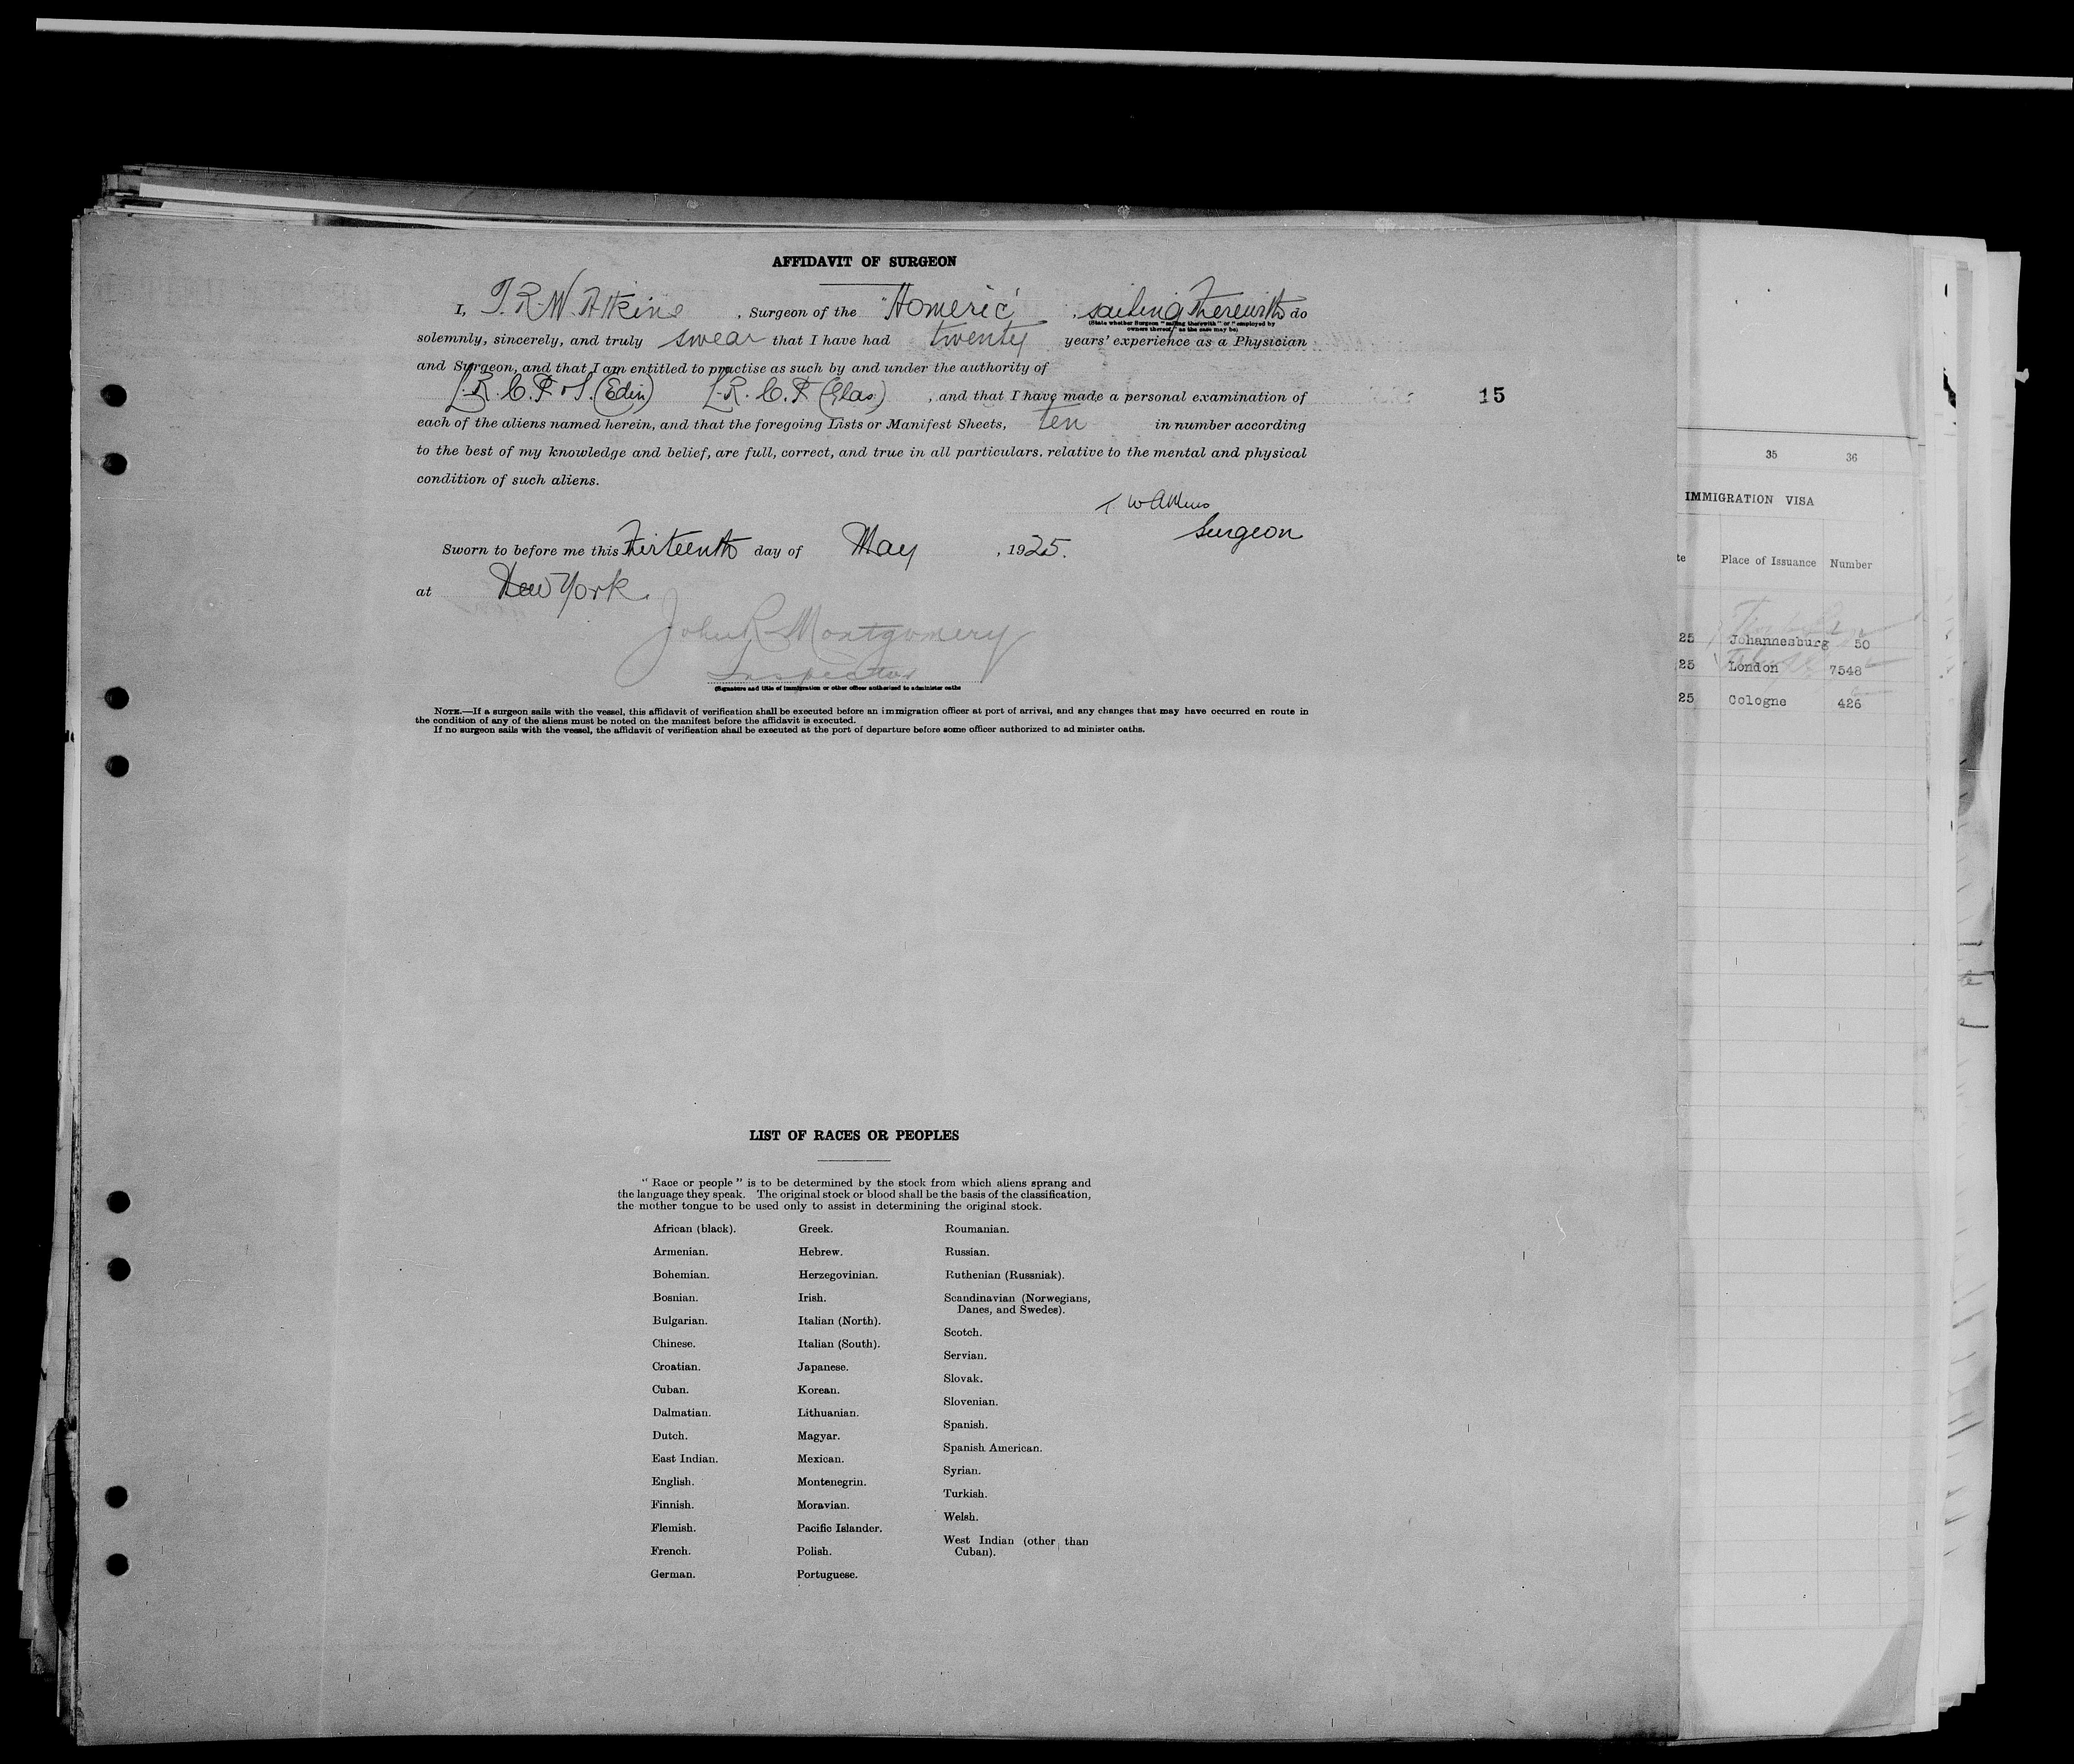 AFFIDAVIT OF SURGEON
I, T. R. W. Atkins, Surgeon of the "Homeric", sailing therewith do
(State whether Surgeon "sailing therewith" or "employed by
owners thereof," as the case may be)
solemnly, sincerely, and truly swear that I have had twenty years' experience as a Physician
and Surgeon, and that I am entitled to practise as such by and under the authority of
L.R.C.P & S. (Edin) L.R.C.P (Glas.), and that I have made a personal examination of
15
each of the aliens named herein, and that the foregoing Lists or Manifest Sheets, ten in number according
to the best of my knowledge and belief, are full, correct, and true in all particulars. relative to the mental and physical
condition of such aliens.
T. W Atkins
Surgeon
Sworn to before me this Thirteenth day of May, 1925.
at New York.
John R Montgomery
Inspector
(Signature and title of immigration or other officer authorized to administer oaths
NOTE.—If a surgeon sails with the vessel, this affidavit of verification shall be executed before an immigration officer at port of arrival, and any changes that may have occurred en route in
the condition of any of the aliens must be noted on the manifest before the affidavit is executed.
If no surgeon sails with the vessel, the affidavit of verification shall be executed at the port of departure before some officer authorized to ad minister oaths.
LIST OF RACES OR PEOPLES
" Race or people " is to be determined by the stock from which aliens sprang and
the language they speak. The original stock or blood shall be the basis of the classification,
the mother tongue to be used only to assist in determining the original stock.
African (black).
Armenian.
Bohemian.
Bosnian.
Bulgarian.
Chinese.
Croatian.
Cuban.
Dalmatian.
Dutch.
East Indian.
English.
Finnish.
Flemish.
French.
German.
Greek.
Hebrew.
Herzegovinian.
Irish.
Italian (North).
Italian (South).
Japanese.
Korean.
Lithuanian.
Magyar.
Mexican.
Montenegrin.
Moravian.
Pacific Islander.
Polish.
Portuguese.
Roumanian.
Russian.
Ruthenian (Russniak).
Scandinavian (Norwegians,
Danes, and Swedes).
Scotch.
Servian.
Slovak.
Slovenian.
Spanish.
Spanish American.
Syrian.
Turkish.
Welsh.
West Indian (other than
Cuban).
35 36
IMMIGRATION VISA
te Place of Issuance Number
25 Johannesburg 50
25 London 7548
25 Cologne 426